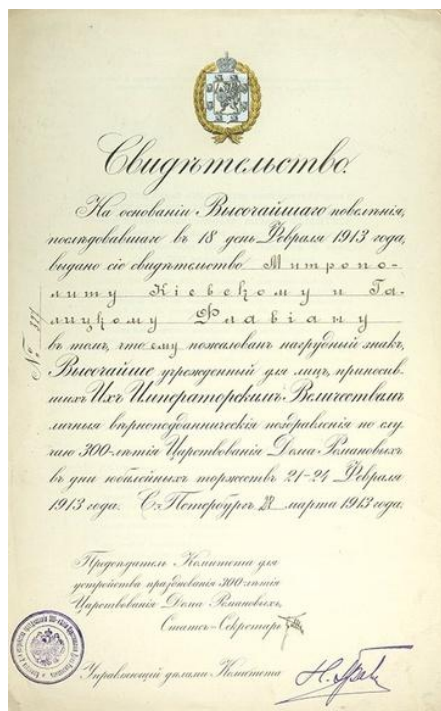 Свидѣтельство.
На основаніи Высочайшаго повелѣнія,
послѣдовавшаго въ 18 день Февраля 1913 года,
выдано сіе свидѣтельство Митропо-
литу Кіевскому и Га-
лицкому Флавіану
въ томъ, что ему пожалованъ нагрудный знакъ,
Высочайше учрежденный для лицъ, приносив-
шихъ Ихъ Императорскимъ Величествамъ
личныя вѣрноподданническія поздравленія по слу-
чаю 300-лѣтія Царствованія Дома Романовыхъ
въ дни юбилейныхъ торжествъ 21-24 Февраля
1913 года. С.-Петербургъ, марта 1913 года.
№
Предсѣдатель Комитета для
устройства празднованія 300-лѣтія
Царствованія Дома Романовыхъ,
Статсъ-Секретарь
Управляющій дѣлами Комитета